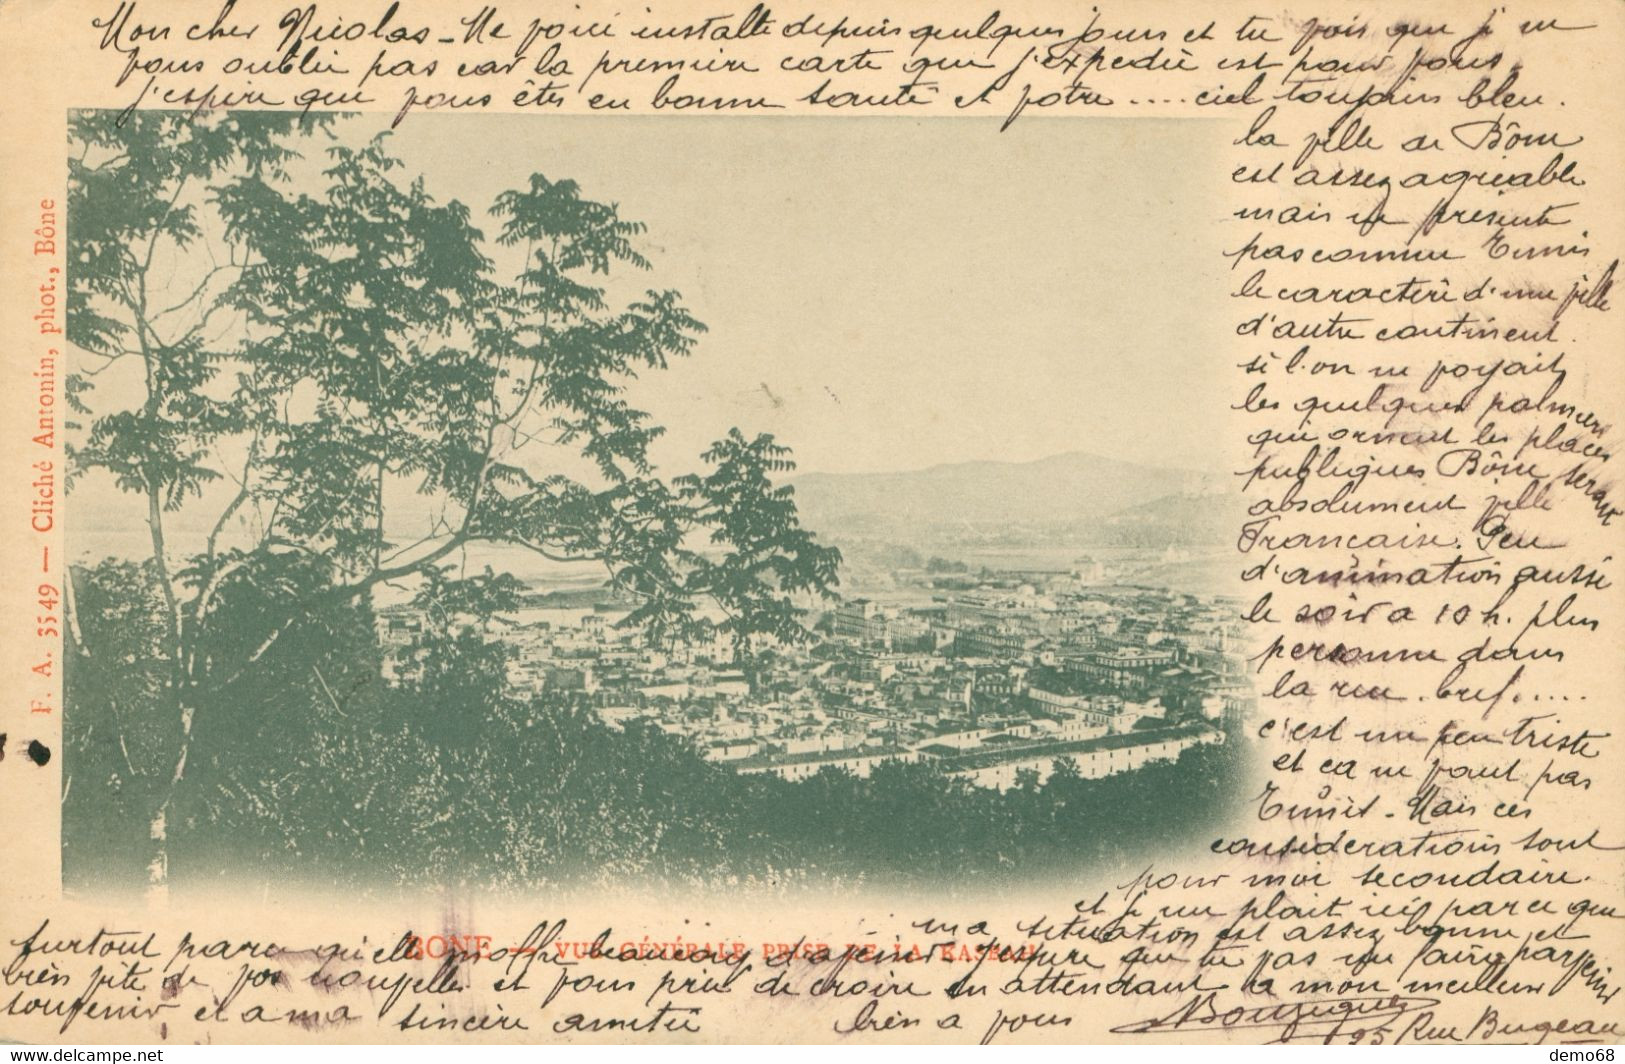 Mon cher Nicolas - Me voici installé depuis quelques jours et tu vois que je ne
vous oublie pas car la première carte que j'expédie est pour vous.
j'espère que vous êtes en bonne santé et votre .... ciel toujours bleu.
la ville de Bône
est assez agréable
mais ne présente
pas comme Tunis
le caractère d'une ville
d'autre continent.
si l'on ne voyait
les quelques palmiers
qui ornent les places
publiques Bône serait
absolument ville
Française. Peu
d'animation aussi
le soir à 10 h. plus
personne dans
la rue. bref.....
c'est un peu triste
et ça ne vaut pas
Tunis. Mais ces
considérations sont
pour moi secondaire.
et je me plait ici parce que
ma situation est assez bonne et
surtout parce qu'elle m'offre beaucoup d'avenir. J'espère que tu vas me faire parvenir
bien vite de vos nouvelles et vous prie de croire en attendant à mon meilleur
souvenir et à ma sincère amitié
bien à vous
25 Rue Bugeaud
BONE — VUE GÉNÉRALE PRISE DE LA KASBAH
F. A. 3549 — Cliché Antonin, phot., Bône
www.delcampe.net
demo68